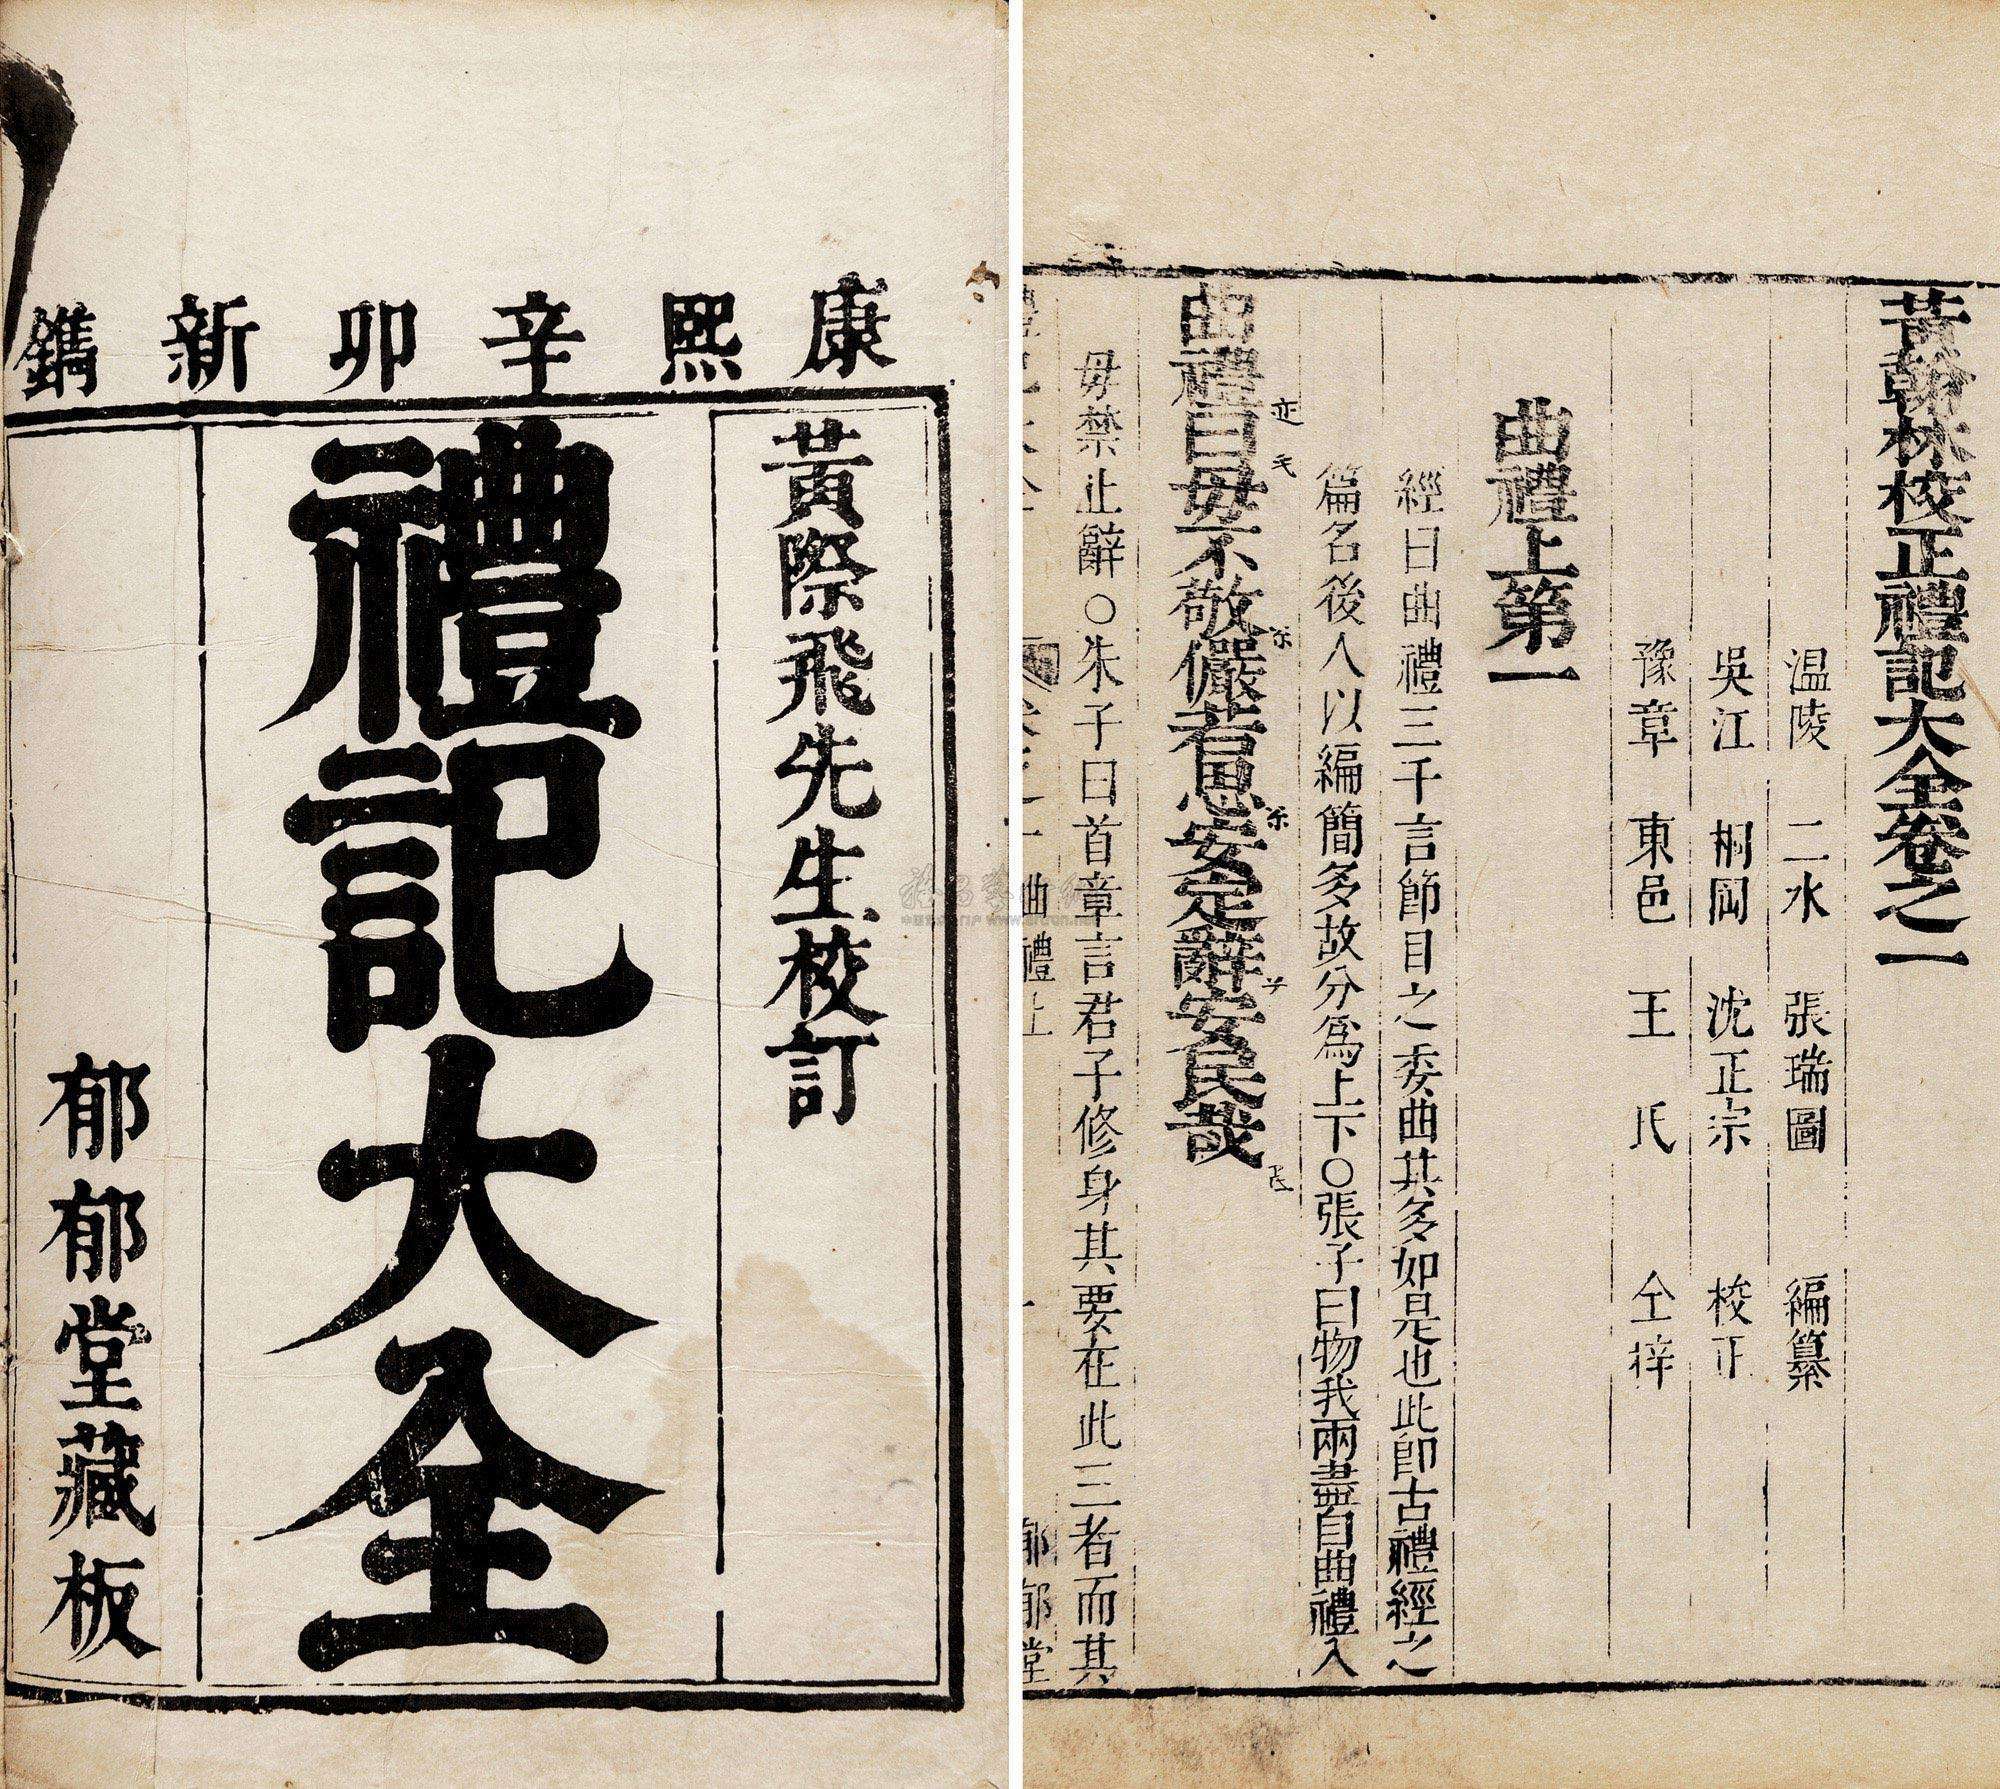 康熙辛卯新鐫
黃際飛先生校訂
禮記大全
郁郁堂藏板
黃翰林校正禮記大全卷之一
溫陵 二水 張瑞圖 編纂
吳江 桐岡 沈正宗 校正
豫章 東邑 王氏 仝梓
曲禮上第一
經曰曲禮三千言節目之委曲其多如是也此即古禮經之
篇名後人以編簡多故分爲上下○張子曰物我兩盡自曲禮入
曲禮曰毋不敬儼若思安定辭安民哉
毋禁止辭○朱子曰首章言君子修身其要在此三者而其
曲禮上
郁郁堂